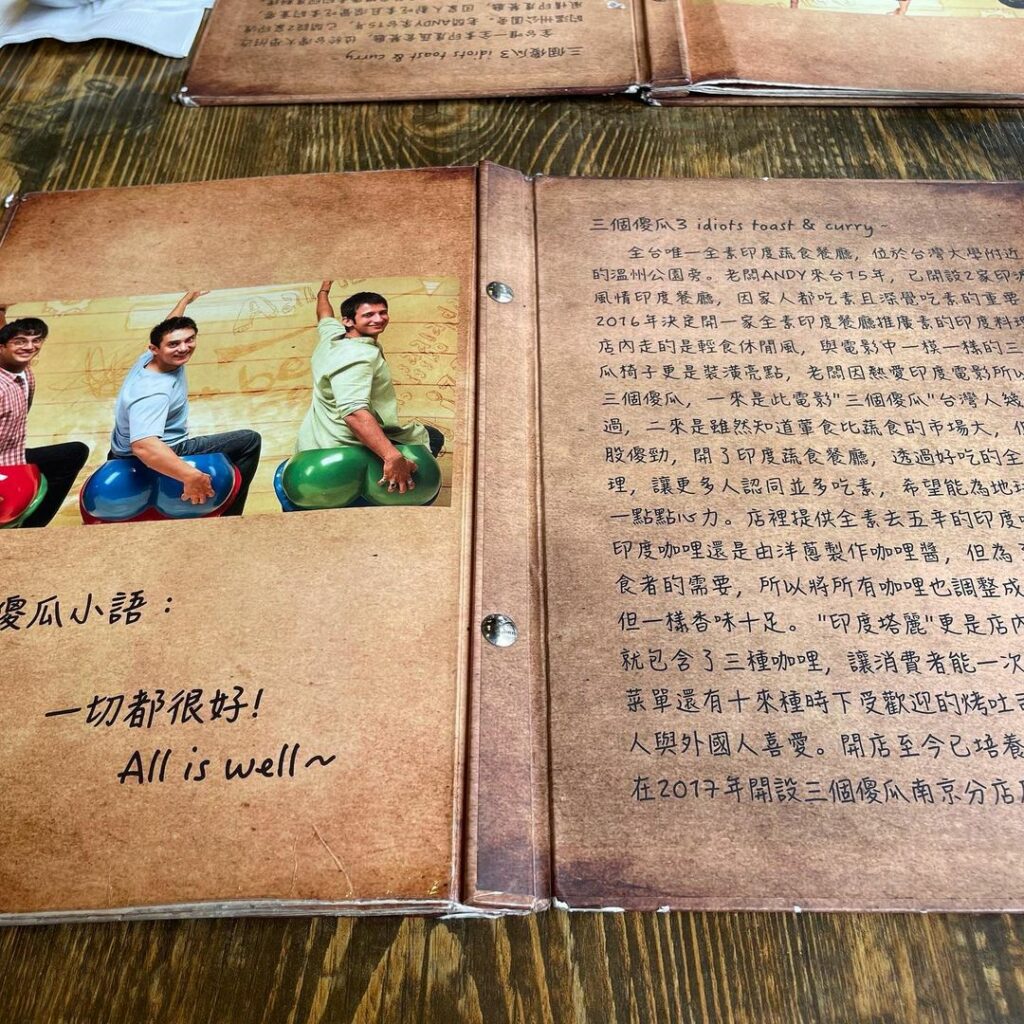 傻瓜小語：
一切都很好！
All is well~
三個傻瓜3 idiots toast & curry~
全台唯一全素印度蔬食餐廳，位於台灣大學附近
的溫州公園旁。老闆ANDY來台15年，已開設2家印
風情印度餐廳，因家人都吃素且深覺吃素的重要
2016年決定開一家全素印度餐廳推廣素的印度料理
店內走的是輕食休閒風，與電影中一模一樣的三
瓜椅子更是裝潢亮點，老闆因熱愛印度電影所以
三個傻瓜，一來是此電影"三個傻瓜"台灣人幾
過，二來是雖然知道葷食比蔬食的市場大，但
股傻勁，開了印度蔬食餐廳，透過好吃的全
理，讓更多人認同並多吃素，希望能為地球
一點點心力。店裡提供全素去五辛的印度
印度咖哩還是由洋蔥製作咖哩醬，但為
食者的需要，所以將所有咖哩也調整成
但一樣香味十足。"印度塔麗"更是店內
就包含了三種咖哩，讓消費者能一次
菜單還有十來種時下受歡迎的烤吐司
人與外國人喜愛。開店至今已培養
在2017年開設三個傻瓜南京分店